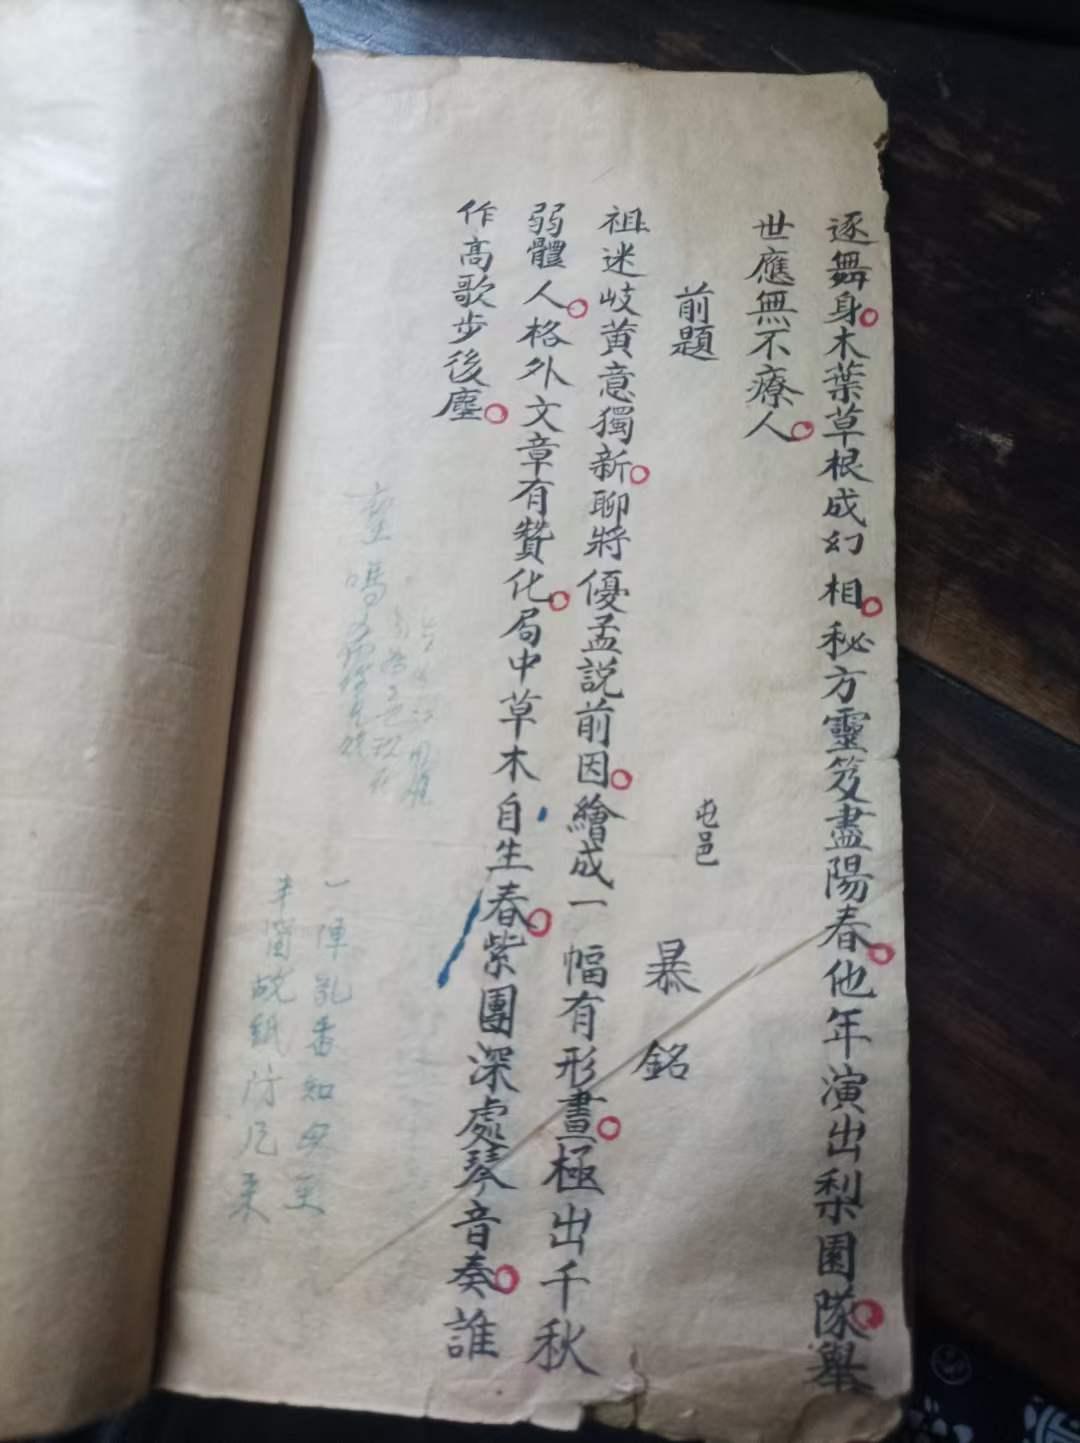 逐舞身。木葉草根成幻相。秘方靈笈盡陽春。他年演出梨園隊。舉
世應無不療人。
前題
屯邑 暴銘
祖述岐黃意獨新。聊將優孟説前因。繪成一幅有形畫。極出千秋
弱體人。格外文章有贊化。局中草木自生春。紫團深處琴音奏。誰
作高歌步後塵。
一陣乱香知母至
半窗故紙防風來